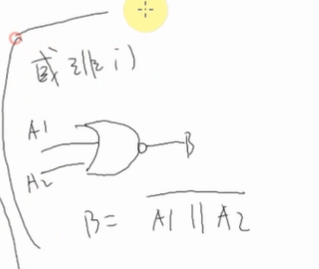 或非(非;)
A1
A2
B
B = \overline{A1 || A2}